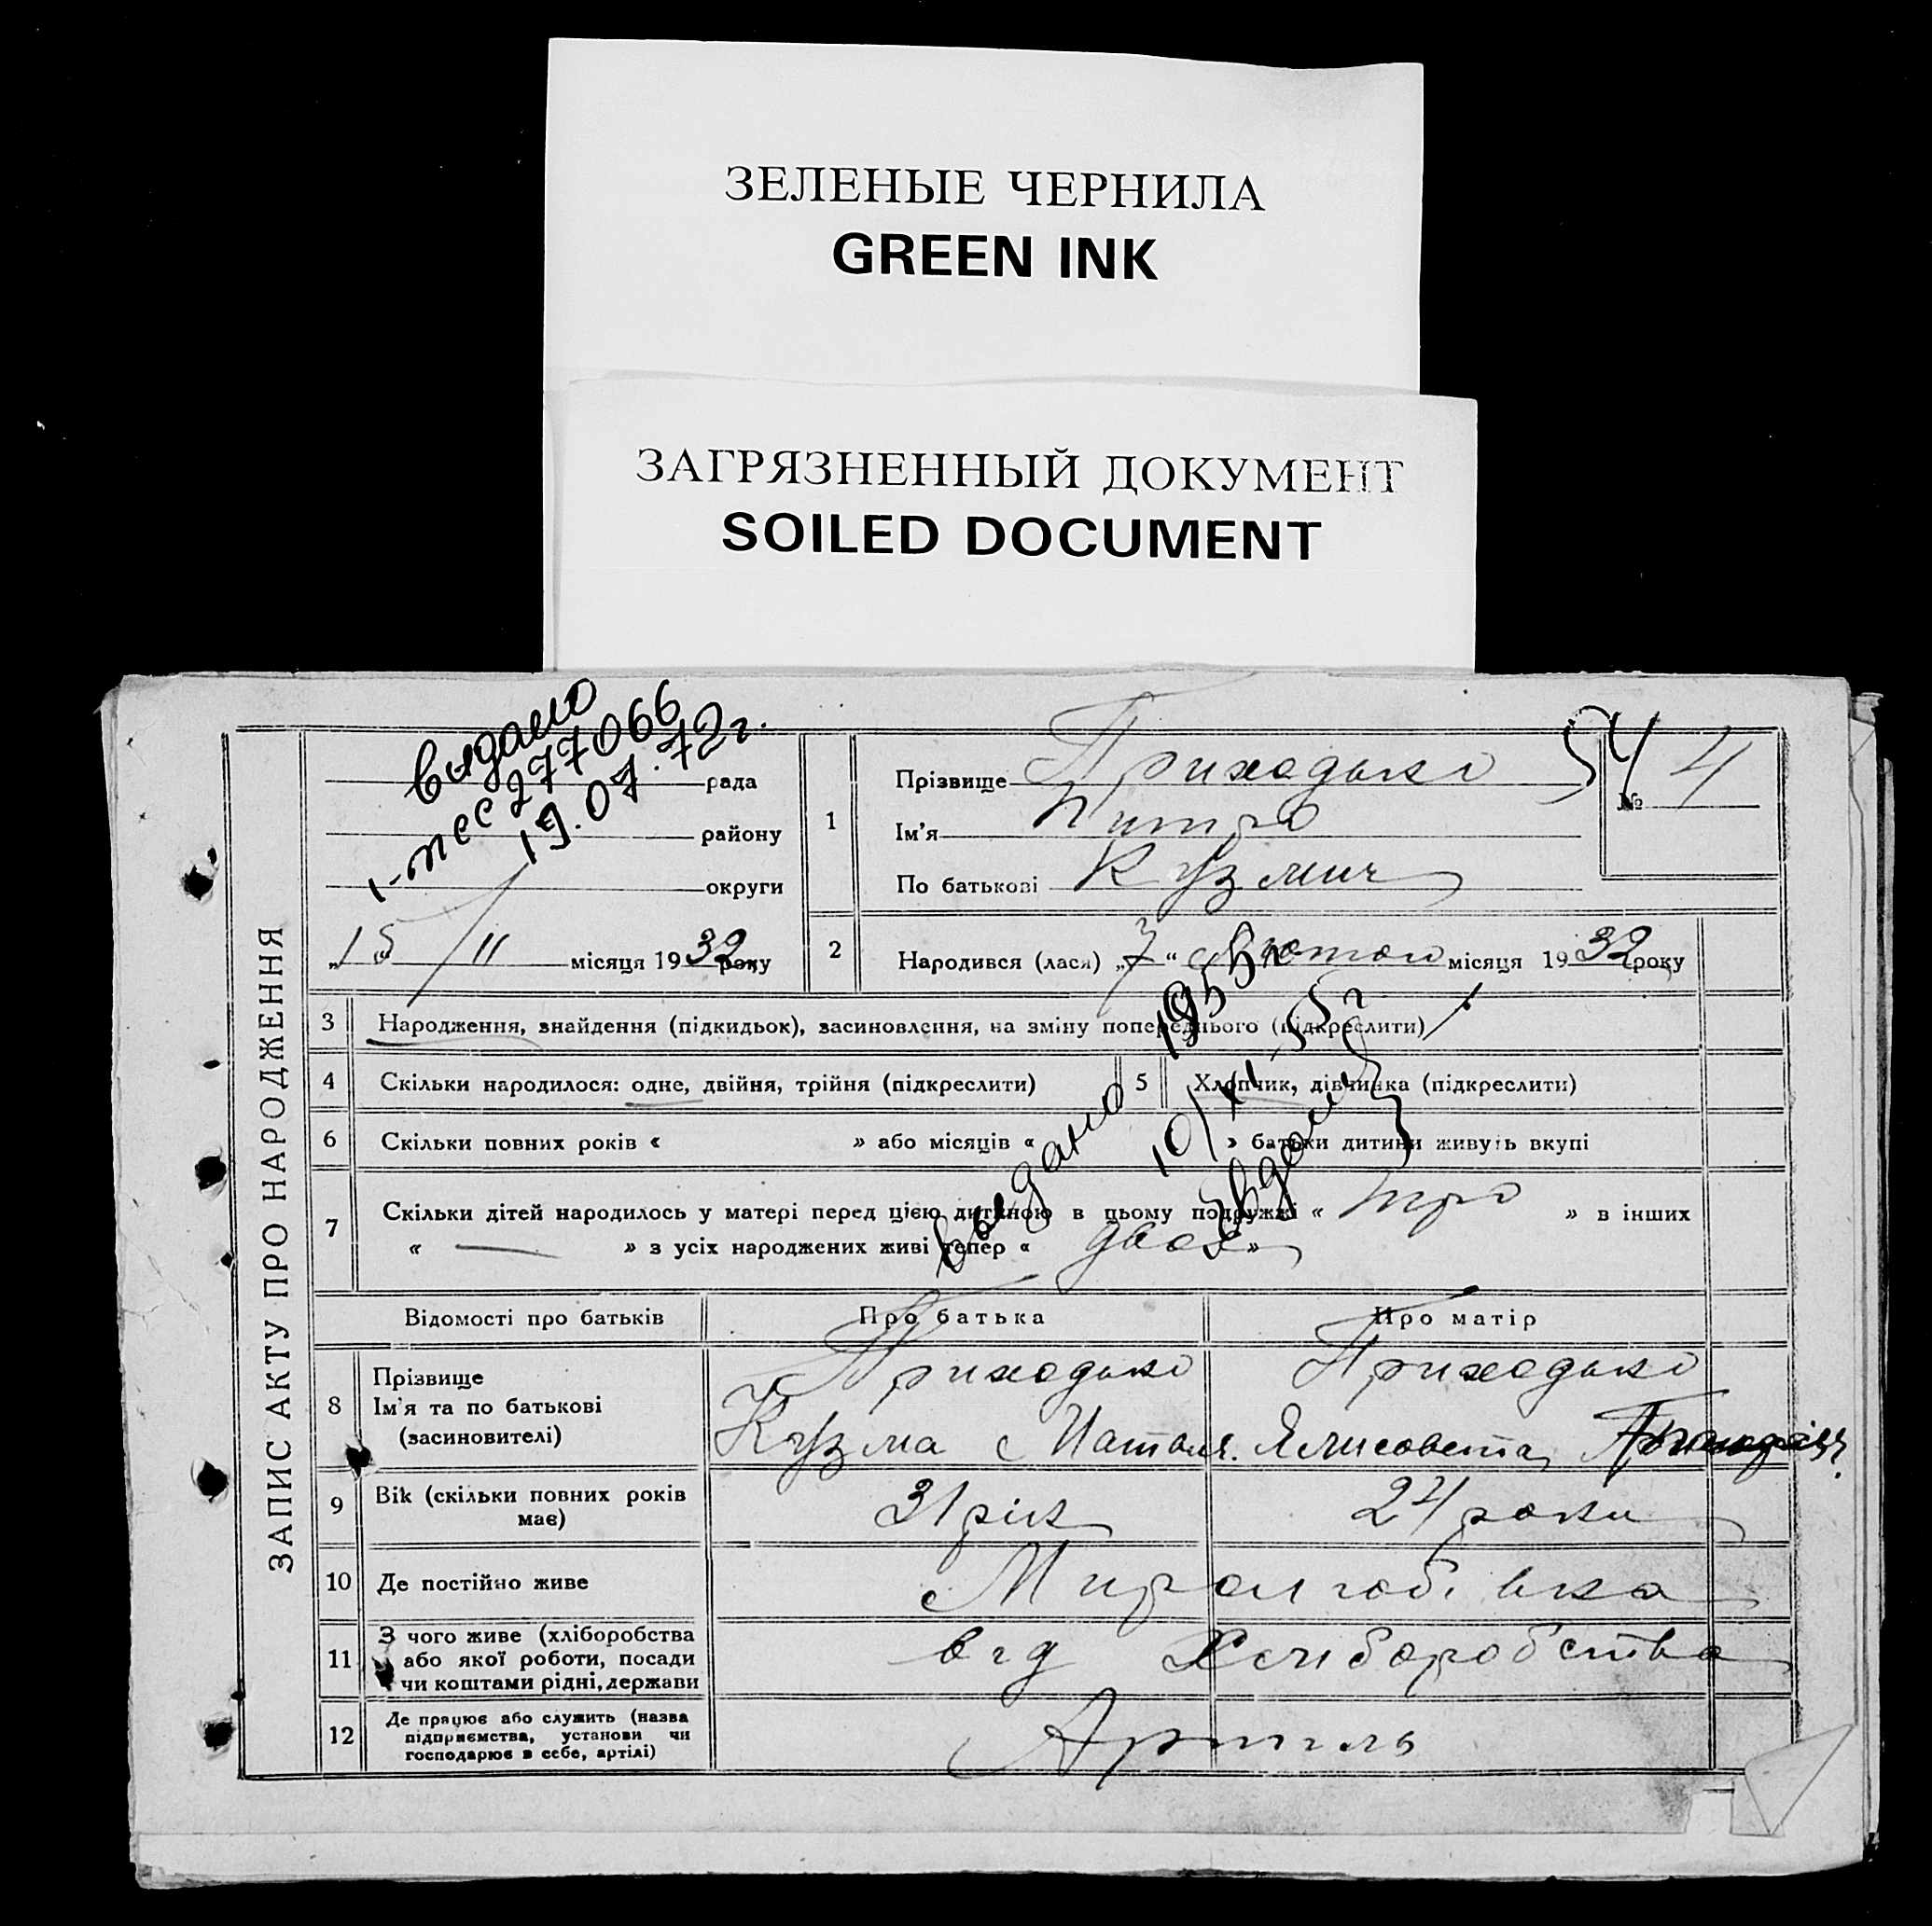 ЗЕЛЕНЫЕ ЧЕРНИЛА
GREEN INK
ЗАГРЯЗНЕННЫЙ ДОКУМЕНТ
SOILED DOCUMENT
ЗАПИС АКТУ ПРО НАРОДЖЕННЯ
видано
277066
19.07.72г.
рада
району
округи
"15/II місяця 1932 року
1
Прізвище Приходько
Ім'я Питро
По батькові Кузмич
54
№ 4
2 Народився (лася) „7“ лютого місяця 1932 року
3 Народження, знайдення (підкидьок), засиновлення, на зміну попереднього (підкреслити)
4 Скільки народилося: одне, двійня, трійня (підкреслити) 5 Хлопчик, дівчинка (підкреслити)
6 Скільки повних років « » або місяців « » батьки дитини живуть вкупі
7 Скільки дітей народилось у матері перед цією дитиною в цьому подружжі « тро » в інших
« — » з усіх народжених живі тепер « двох »
выдано
10/XI 55г
Відомості про батьків Про батька Про матір
8 Прізвище
Ім'я та по батькові
(засиновителі)
Приходько
Кузма
Приходько
Ялисовета
9 Вік (скільки повних років
має)
31 рік 24 роки
10 Де постійно живе Миролюбівка
11 З чого живе (хліборобства
або якої роботи, посади
чи коштами рідні, держави
від Хлиборобства
12 Де працює або служить (назва
підприємства, установи чи
господарює в себе, артілі)
Артиль